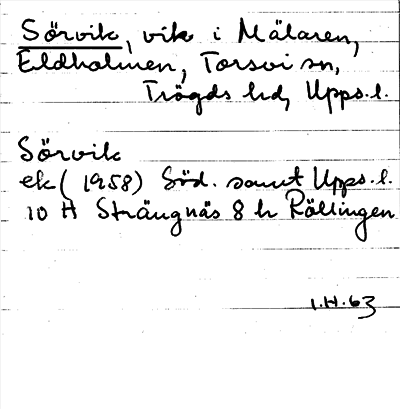 Sörvik, vik i Mälaren,
Eldholmen, Torsvi sn,
Trögds hd, Upps. l.
Sörvik
ek (1958) Söd. samt Upps. l.
10 H Strängnäs 8 h Rällingen
1.H.63